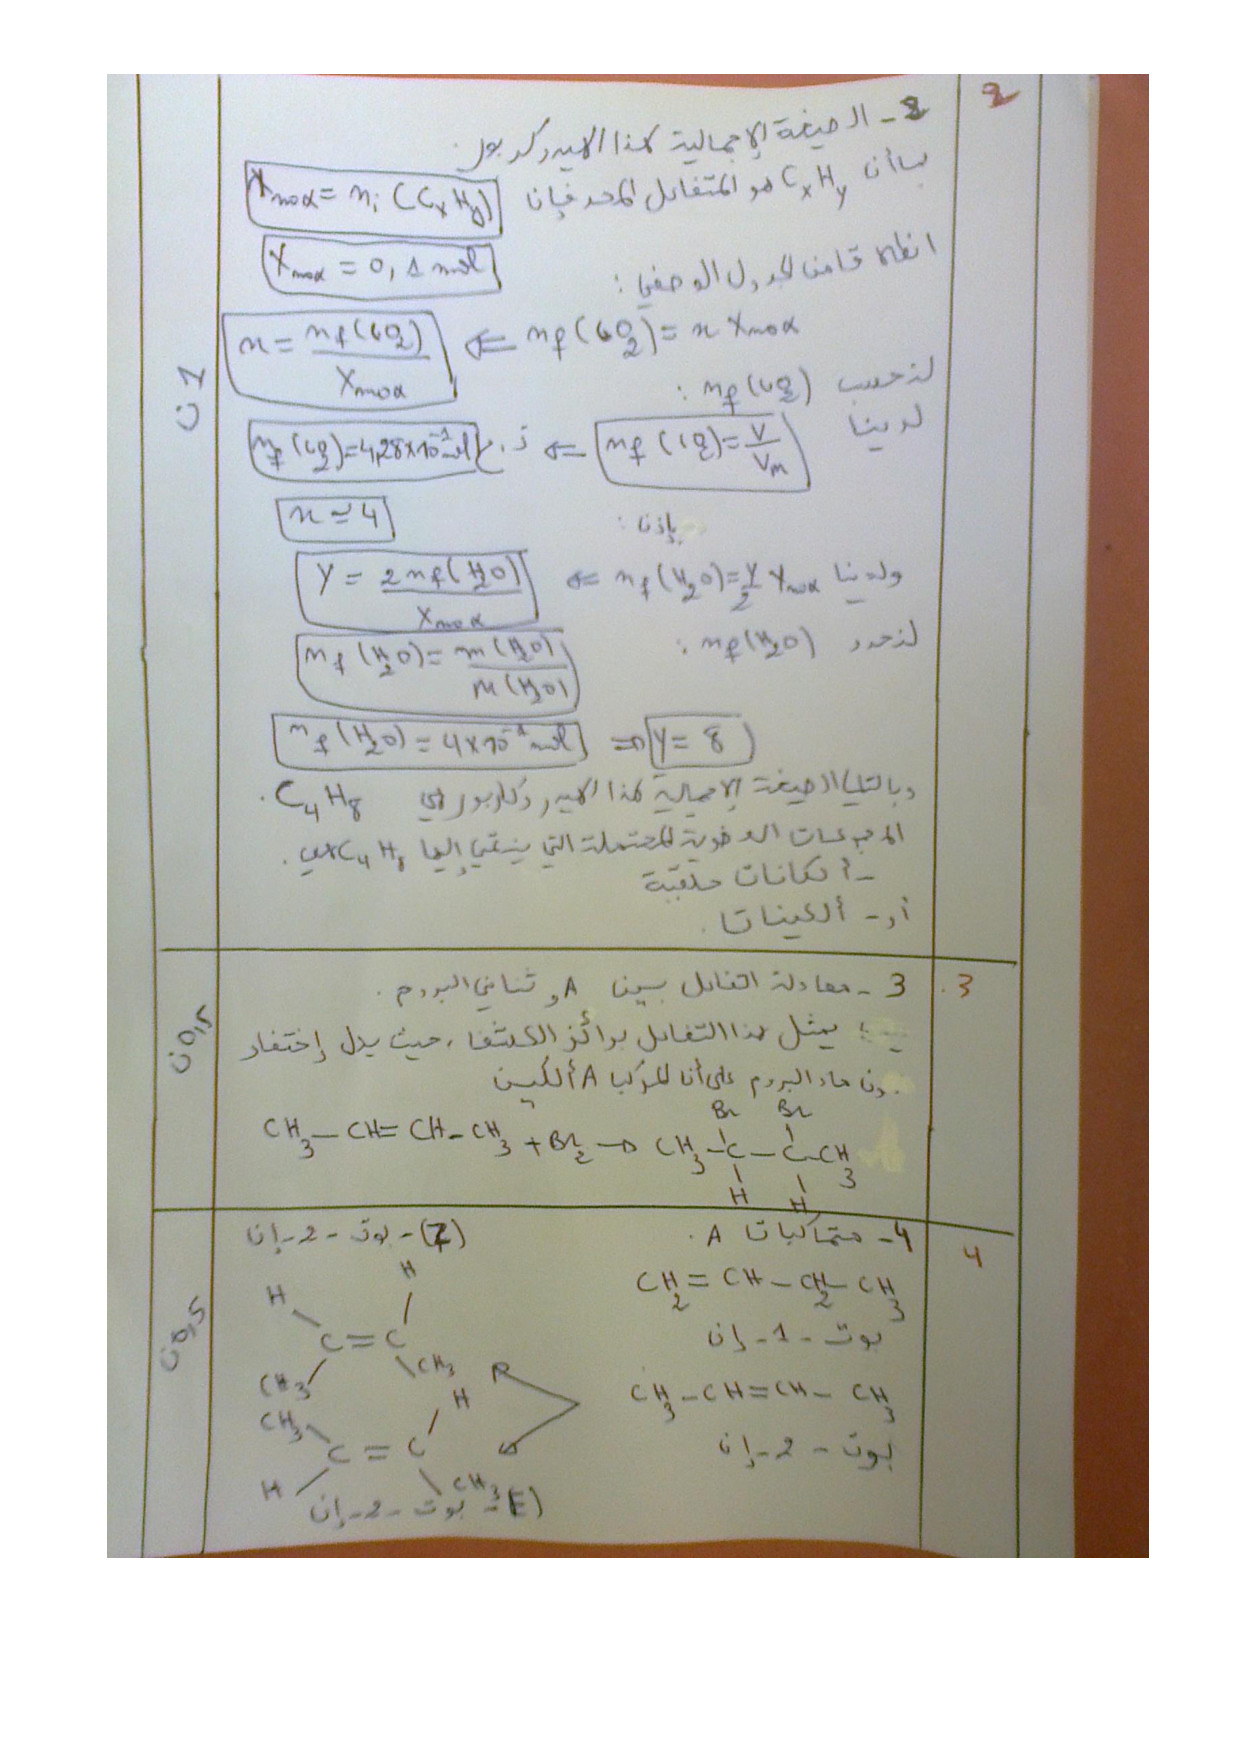 2
2 - الصيغة الإجمالية لهذا الهيدروكربور.
بما أن CxHy هو المتفاعل المحد فإن Xmax = ni (CxHy)
Xmax = 0,1 mol
انطلاقا من الجدول الوصفي :
nf(CO2) = x Xmax ⇐ x = nf(CO2) / Xmax
لنحسب nf(CO2) :
لدينا nf(CO2) = V / Vm ⇐ ت.ع nf(CO2) = 4,28×10^-1 mol
إذن : x ≃ 4
ولدينا nf(H2O) = y/2 Xmax ⇐ y = 2 nf(H2O) / Xmax
لنحدد nf(H2O) :
nf(H2O) = m(H2O) / M(H2O)
nf(H2O) = 4×10^-1 mol ⇒ y = 8
وبالتالي الصيغة الإجمالية لهذا الهيدروكاربور هي C4H8.
المجموعات العضوية المحتملة التي ينتمي إليها C4H8 هي.
- ألكانات حلقية
أو - ألكينات.
1 ن
3.
3 - معادلة التفاعل بين A و ثنائي البروم.
يمثل هذا التفاعل روائز الكشف، حيث يدل إختفاء
لون ماء البروم على أن المركب A ألكين
CH3 - CH = CH - CH3 + Br2 → CH3 - C - C - CH3
Br Br
H H
0,5 ن
4
4 - متماكبات A.
CH2 = CH - CH2 - CH3
بوت - 1 - إن
CH3 - CH = CH - CH3
بوت - 2 - إن
(Z) - بوت - 2 - إن
H H
C = C
CH3 CH3
CH3 H
C = C
H CH3
(E) - بوت - 2 - إن
0,5 ن